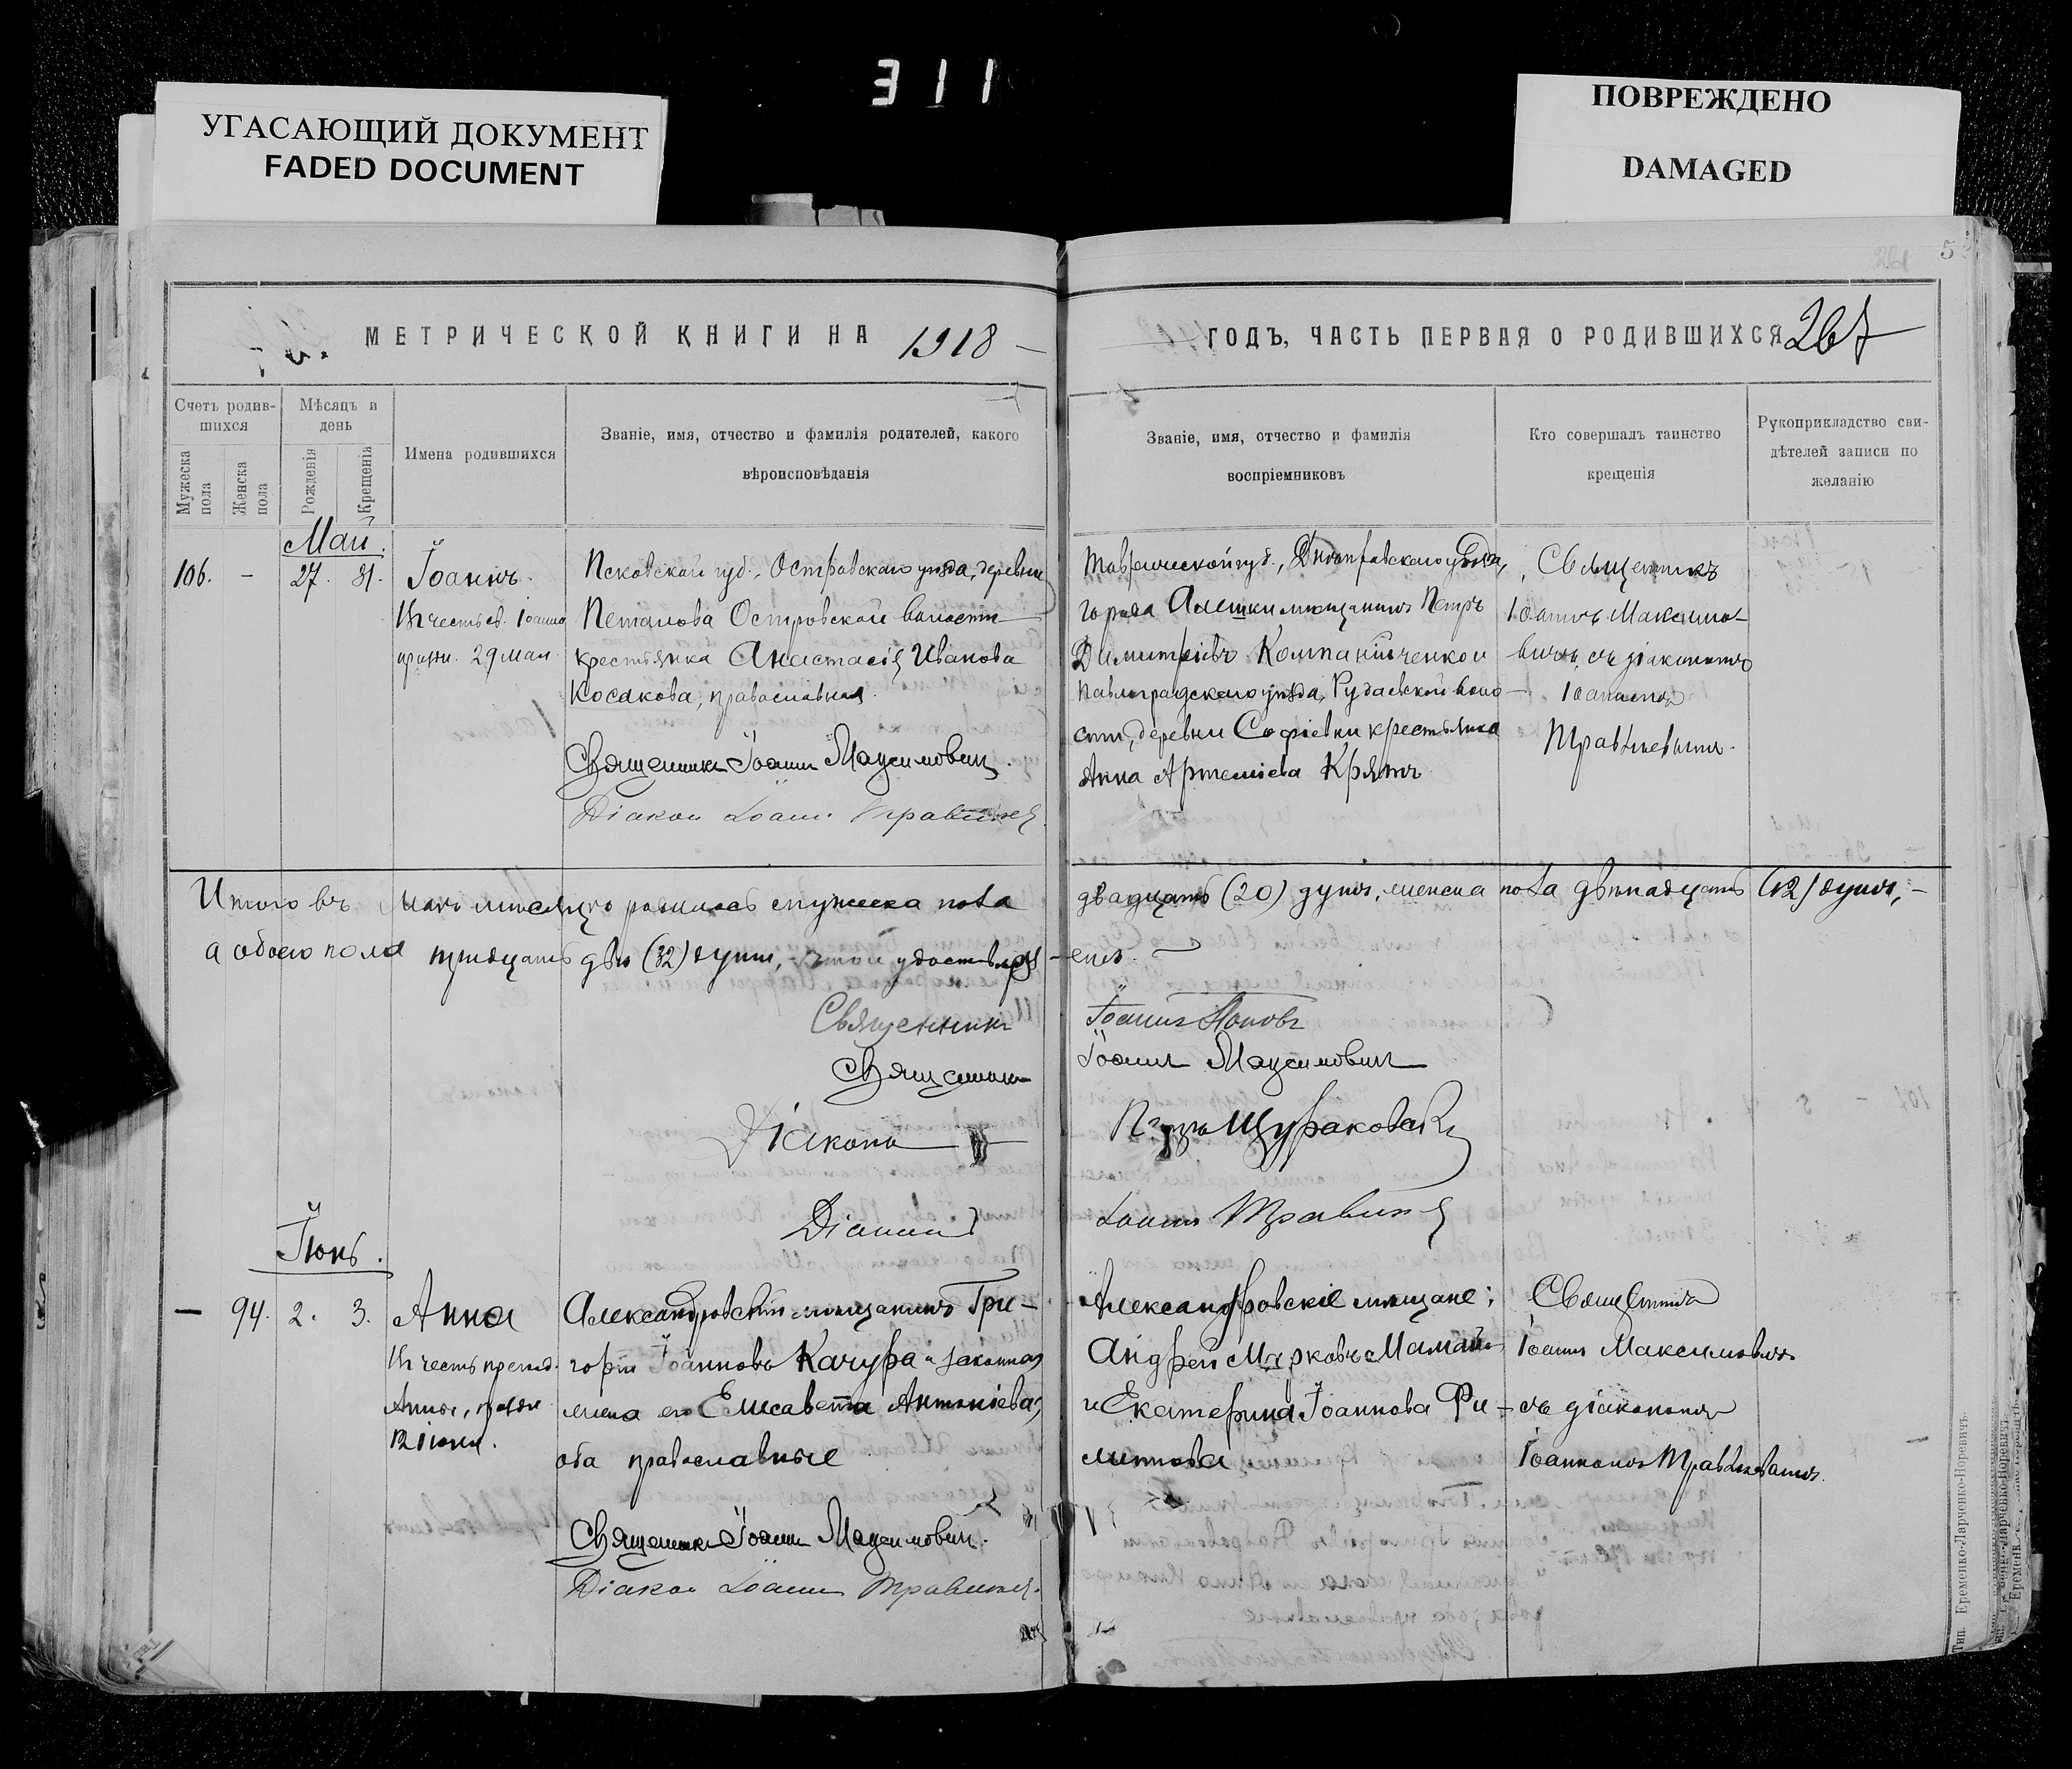 311
УГАСАЮЩИЙ ДОКУМЕНТ
FADED DOCUMENT
ПОВРЕЖДЕНО
DAMAGED
МЕТРИЧЕСКОЙ КНИГИ НА 1918
ГОДЪ, ЧАСТЬ ПЕРВАЯ О РОДИВШИХСЯ 267
Счетъ родив-
шихся
Мужеска пола
Женска пола
Мѣсяцъ и
день
Рожденія
Крещенія
Имена родившихся
Званіе, имя, отчество и фамилія родителей, какого
вѣроисповѣданія
Званіе, имя, отчество и фамилія
воспріемниковъ
Кто совершалъ таинство
крещенія
Рукоприкладство сви-
дѣтелей записи по
желанію
Май.
106. - 27. 31.
Іоаннъ.
Въ честь св. Іоанна
праздн. 29 мая.
Псковской губ., Островскаго уѣзда, деревни
Островской волости
крестьянка Анастасія Иванова
Косакова, православная.
Священникъ Іоаннъ Максимовичъ.
Діаконъ Іоаннъ
Таврической губ., Днѣпровскаго уѣзда,
города Алешки мѣщанинъ Петръ
Димитріевъ и
Павлоградскаго уѣзда, волο-
сти, деревни Софіевки крестьянка
Анна Артеміева
Священникъ
Іоаннъ Максимо-
вичъ, съ діакономъ
Іоанномъ
Итого въ маѣ мѣсяцѣ родилось мужеска пола
двадцать (20) душъ, женска пола двѣнадцать (12) душъ, -
а обоего пола тридцать двѣ (32) души, - въ удостовѣря-
емъ.
Священникъ Іоаннъ Поповъ
Священникъ Іоаннъ Максимовичъ
Діаконъ Щураковскій
Діаконъ Іоаннъ
Іюнь.
- 94. 2. 3.
Анна
Въ честь препод.
Анны, праздн.
12 іюня.
Александровскій мѣщанинъ Гри-
горій Іоанновъ Качура и законная
жена его Елисавета Антоніева,
оба православные
Священникъ Іоаннъ Максимовичъ.
Діаконъ Іоаннъ
Александровскіе мѣщане:
Андрей Марковъ Мамай
и Екатерина Іоаннова Фи-
липпова
Священникъ
Іоаннъ Максимовичъ
съ діакономъ
Іоанномъ
Тип. Еременко-Ларченко-Норевичъ.